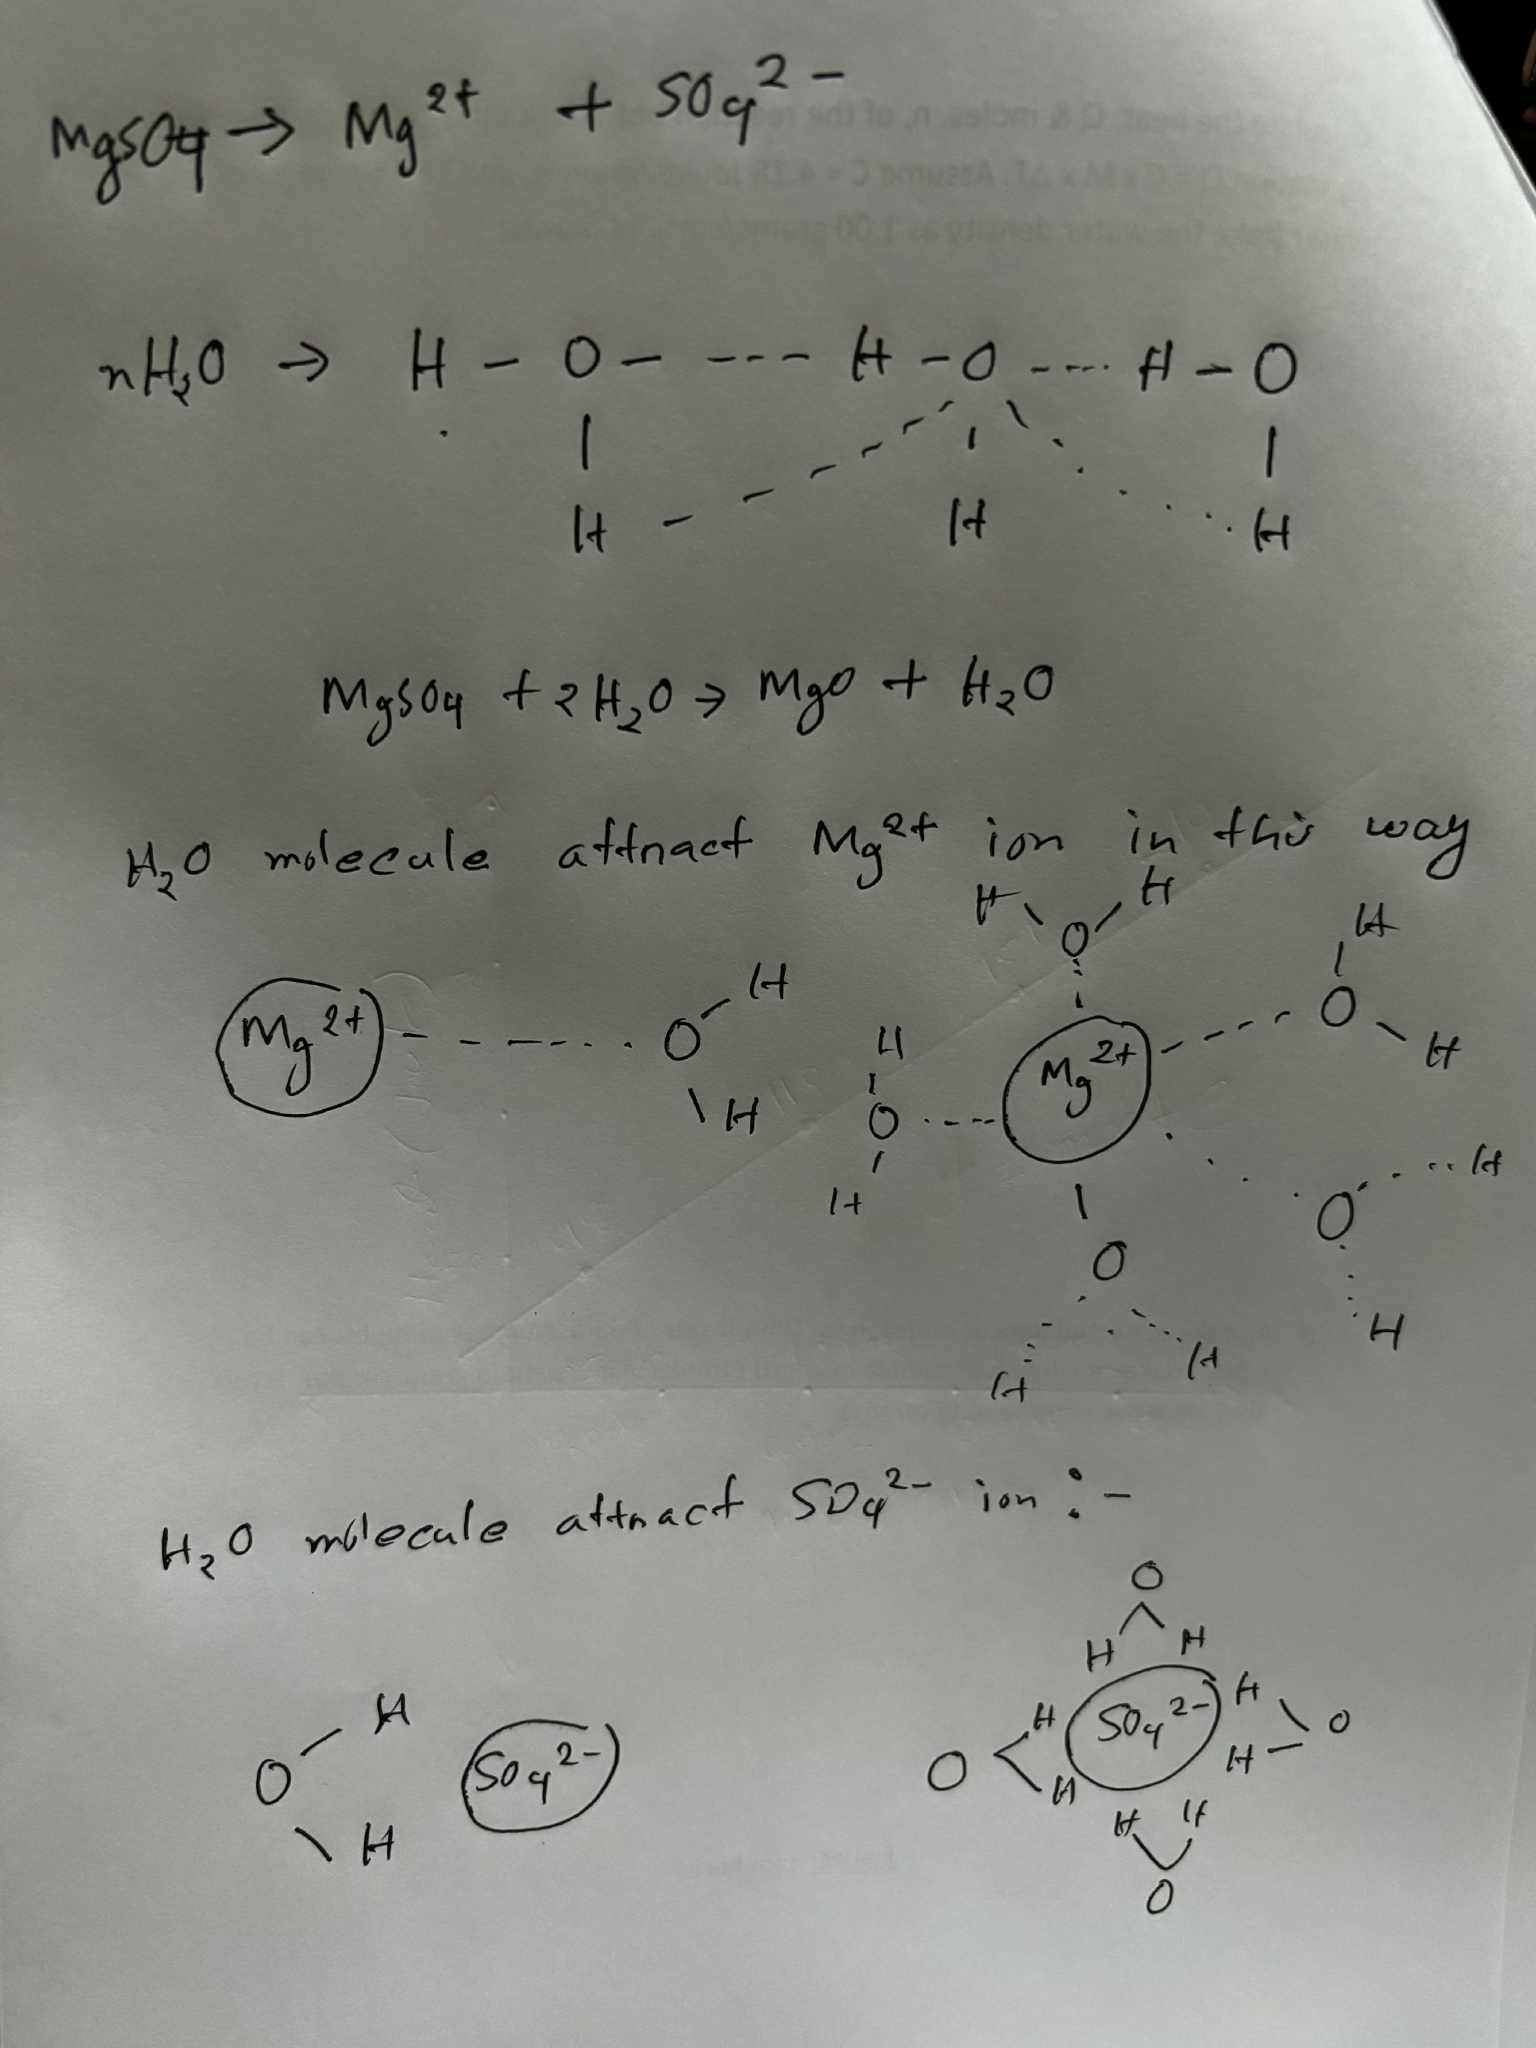 MgSO4 → Mg2+ + SO42-
nH2O → H - O - --- H - O ---- H - O
H H H
MgSO4 + 2H2O → MgO + H2O
H2O molecule attract Mg2+ ion in this way
H H
H
O
Mg2+ ------- O H
H O --- Mg2+ ---- O H
H
H
O H
O
H
H H
H2O molecule attract SO42- ion :-
O
H H
H H H
O SO42- O SO42- O
H H H
H H
O